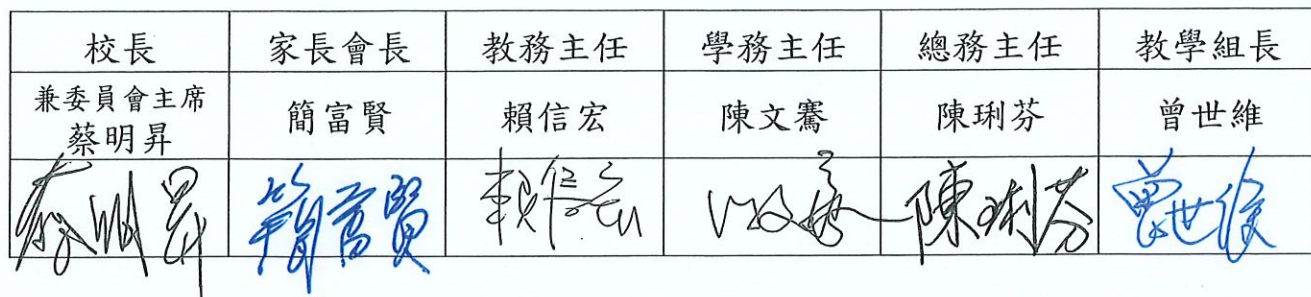 校長 家長會長 教務主任 學務主任 總務主任 教學組長
兼委員會主席
蔡明昇 簡富賢 賴信宏 陳文騫 陳琍芬 曾世維
蔡明昇 簡富賢 賴信宏 陳琍芬 曾世維